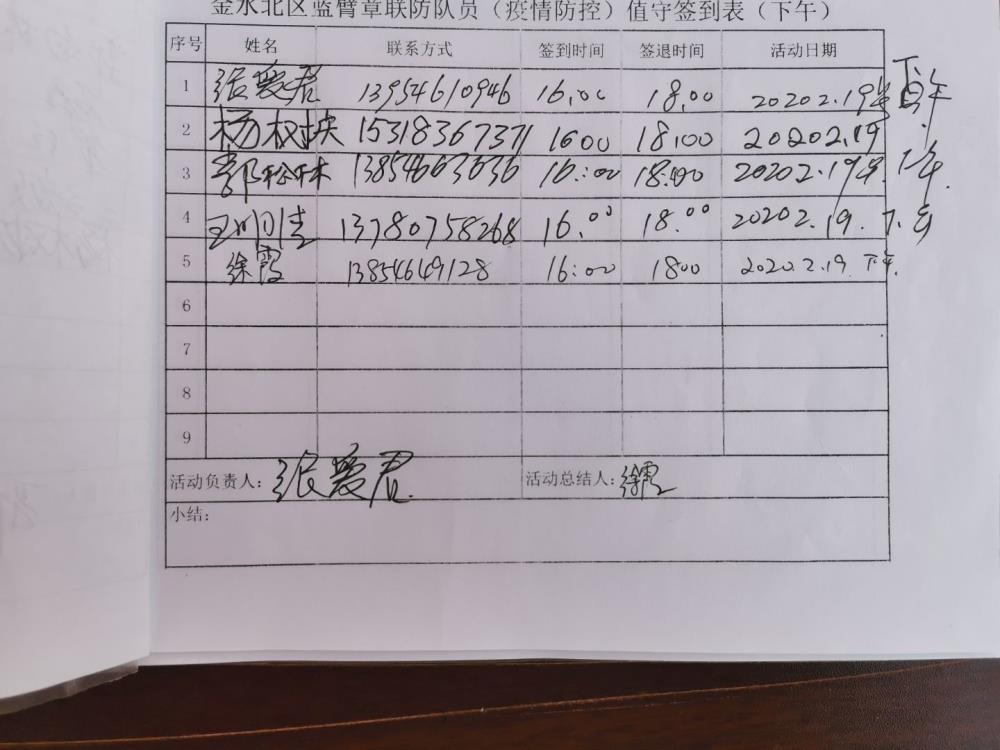 金水北区蓝臂章联防队员（疫情防控）值守签到表（下午）
序号 姓名 联系方式 签到时间 签退时间 活动日期
1 张爱君 13954610946 16.00 18.00 2020 2.19 下午
2 杨 15318367371 16 00 18:00 2020 2.19
3 林 13854663636 16:00 18:00 2020 2.19 下午
4 王明佳 13780758268 16.00 18.00 2020 2.19. 下午
5 徐霞 13854649128 16:00 18 00 2020.2.19. 下午.
6
7
8
9
活动负责人：张爱君 活动总结人：徐霞
小结：